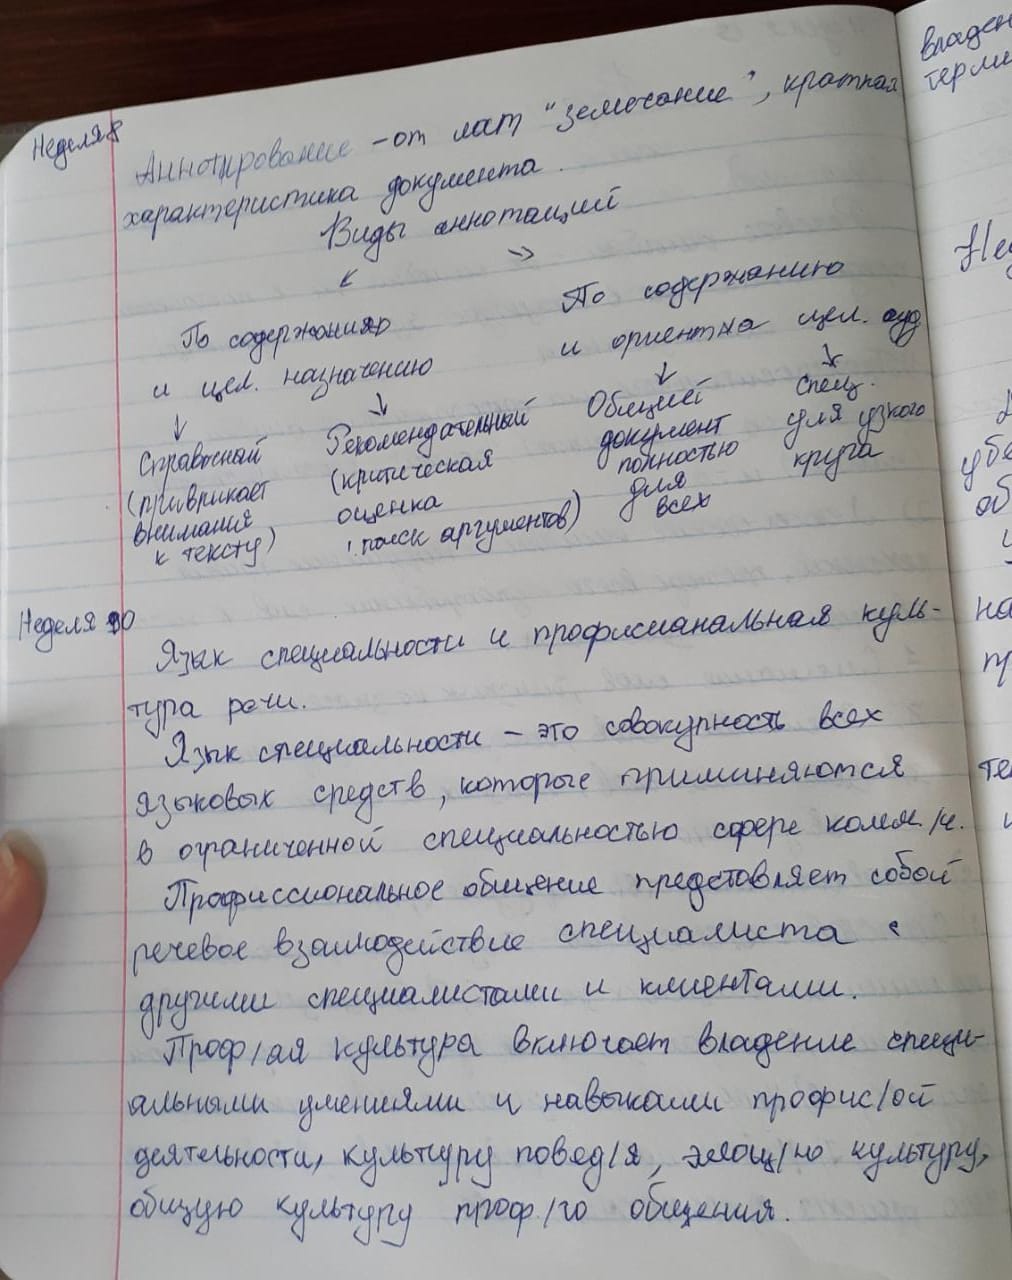 Неделя 8
Аннотирование - от лат "земечание", краткая
характеристика документа.
Виды аннотаций
По содержанию
и цел. назначению
По содержанию
и ориент. на цел. ауд
Справочный
(привлекает
внимания
к тексту)
Рекомендательный
(критическая
оценка
поиск аргументов)
Общий
документ
полностью
для
всех
спец.
для узкого
круга
Неделя 10
Язык специальности и профисианальная куль-
тура речи.
Язык специальности - это совокупность всех
языковых средств, которые приминяются
в ограниченной специальностью сфере
Профиссиональное общение представляет собой
речевое взаимодействие специалиста с
другими специалистами и клиентами.
Проф/ая культура включает владение специ-
альными умениями и навыками профис/ой
деятельности, культуру повед/я, культуру,
общую культуру проф/го общения.
владен
терми
Нед
убе
об
на
пр
те